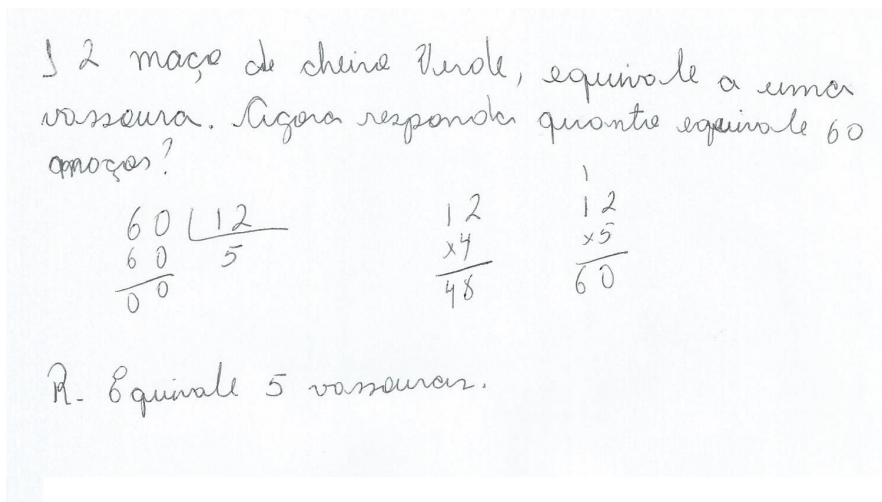 12 maço de cheiro Verde, equivale a uma
vassoura. Agora responda quanto equivale 60
maços?
60 12 12 1 12
60 5 x4 x5
00 48 60
R- Equivale 5 vassouras.